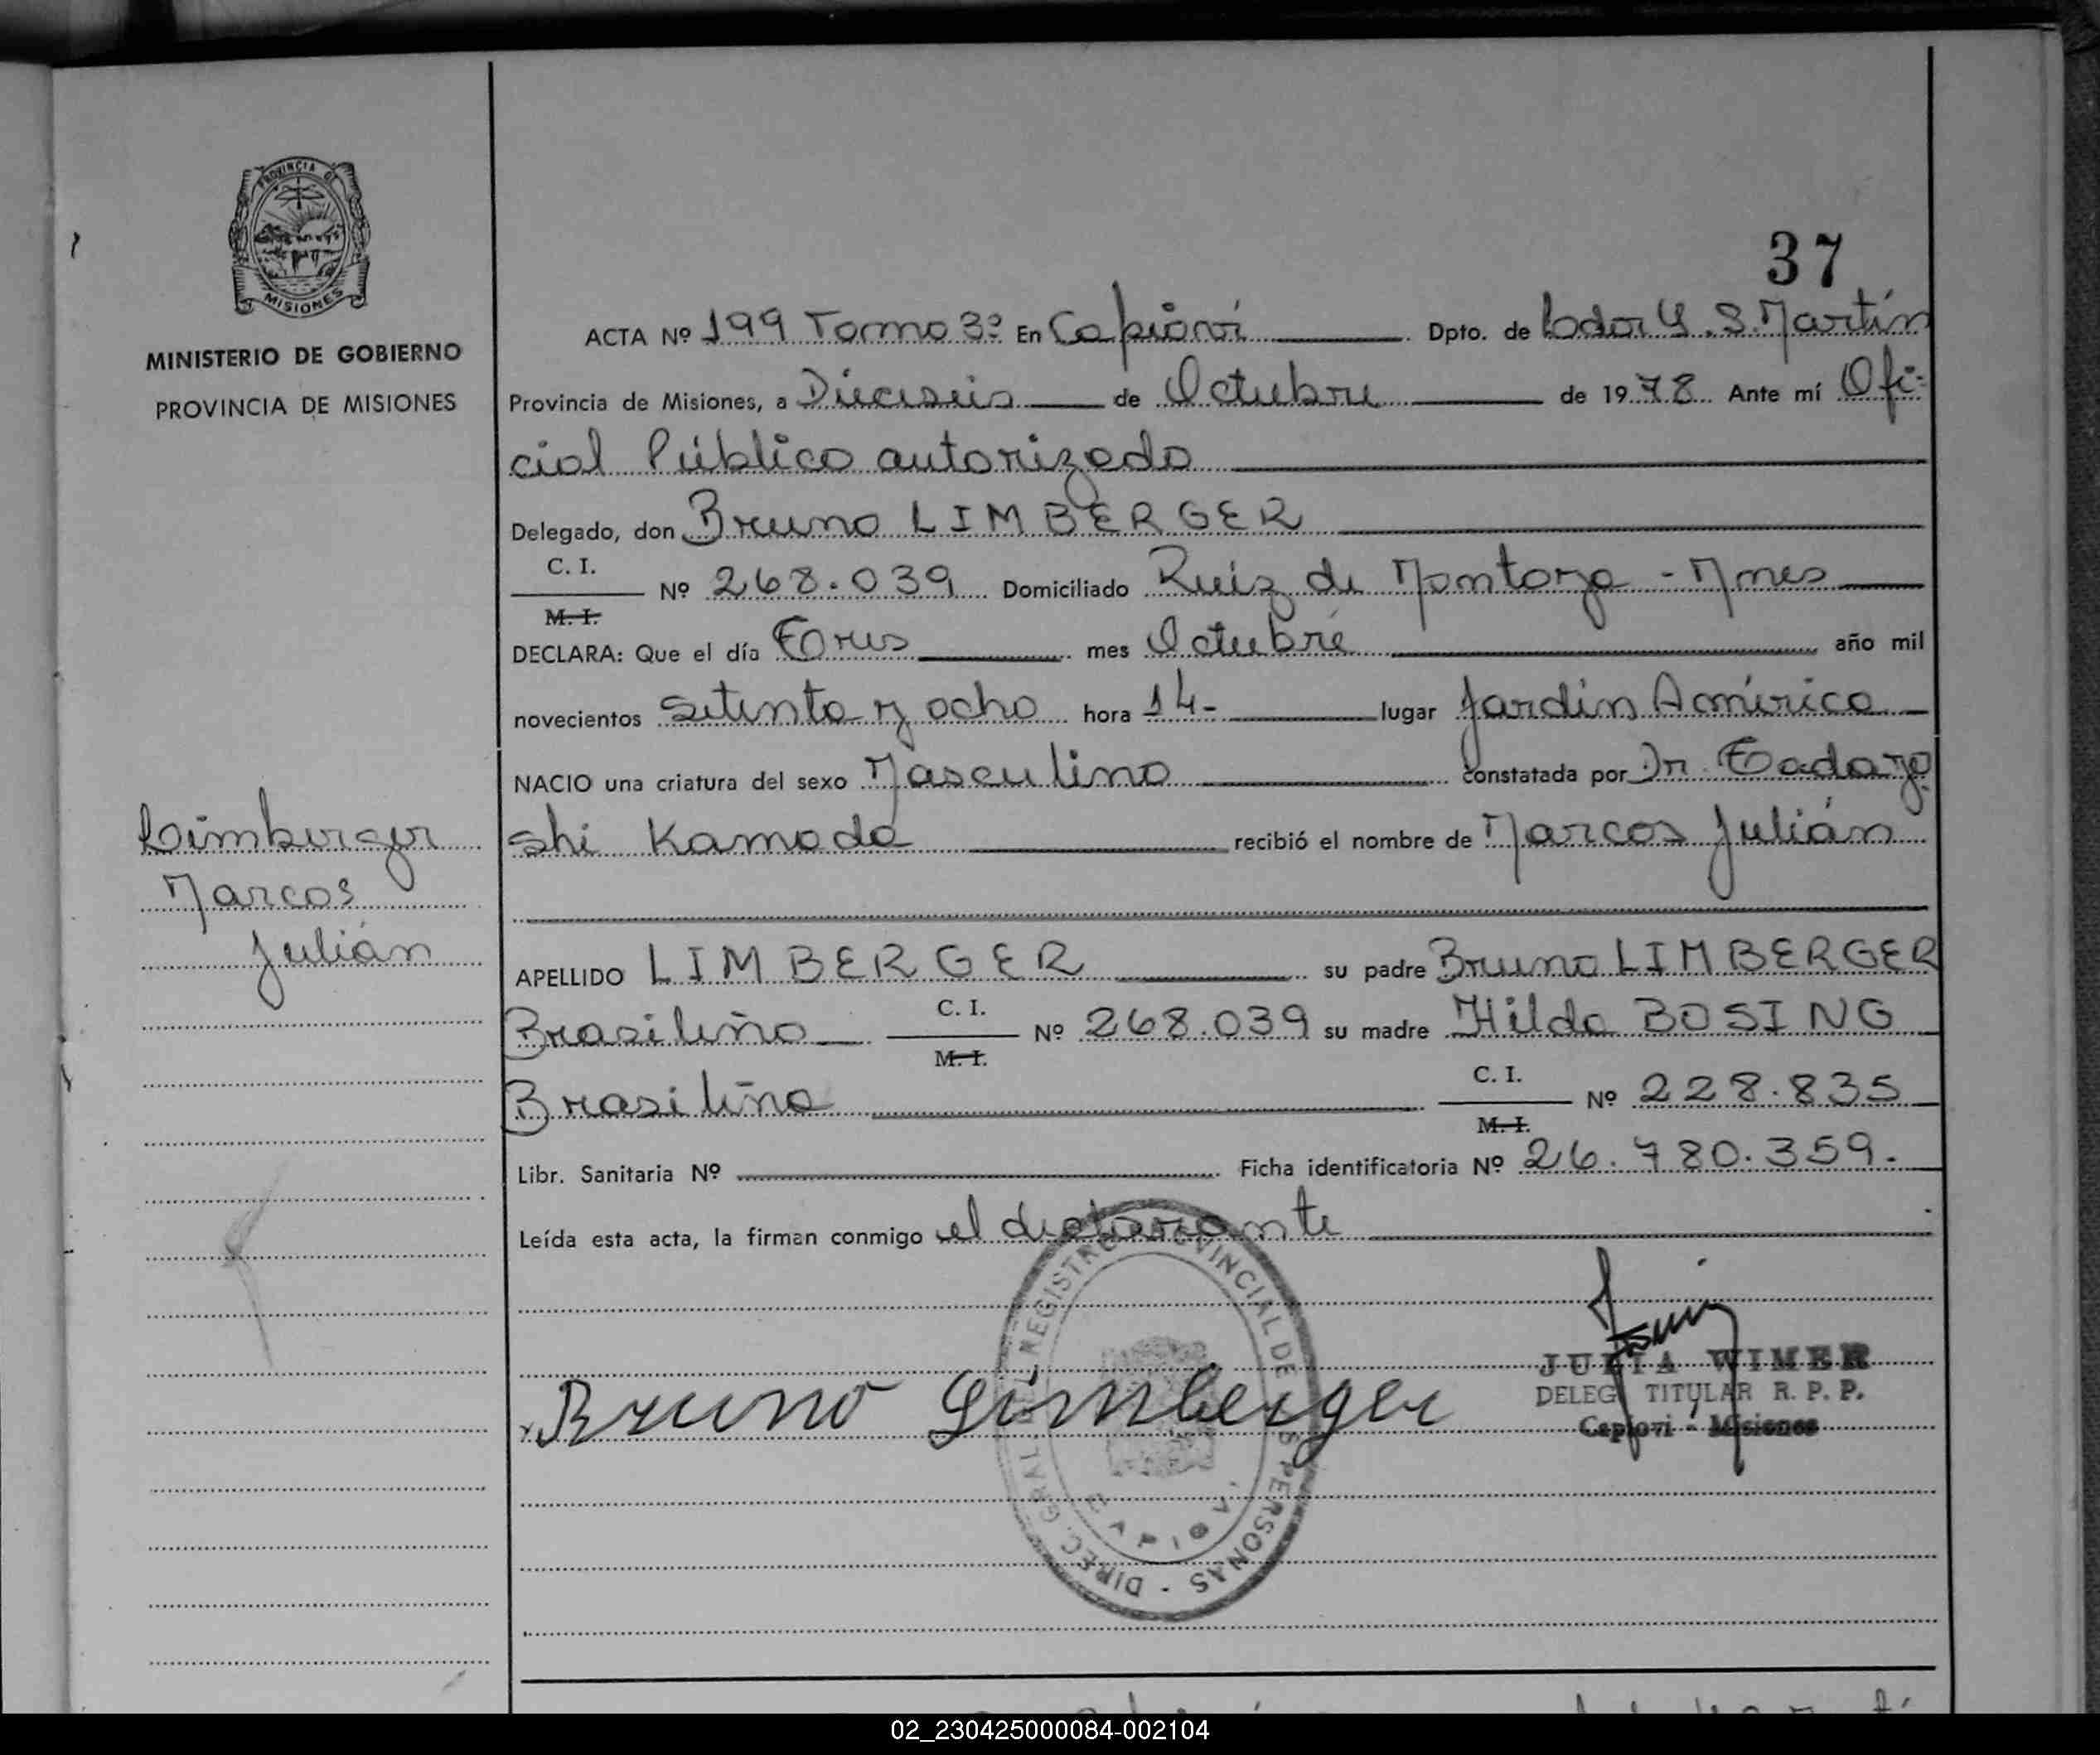 PROVINCIA DE
MISIONES
MINISTERIO DE GOBIERNO
PROVINCIA DE MISIONES
37
ACTA Nº 199 Tomo 3º En Capioví Dpto. de Lodor G. S. Martín
Provincia de Misiones, a Dieciseis de Octubre de 1978 Ante mí Ofi-
cial Público autorizado
Delegado, don Bruno LIMBERGER
C. I.
Nº 268.039 Domiciliado Ruiz de Montoya - Mnes
M. I.
DECLARA: Que el día Trece mes Octubre año mil
novecientos setenta y ocho hora 14- lugar Jardín América
NACIO una criatura del sexo Masculino constatada por Dr. Tadayo
shi Kamada recibió el nombre de Marcos Julián
Limberger
Marcos
Julián
APELLIDO LIMBERGER su padre Bruno LIMBERGER
Brasileño C. I. Nº 268.039 su madre Hilda BOSING
M. I.
Brasileña C. I. Nº 228.835
M. I.
Libr. Sanitaria Nº Ficha identificatoria Nº 26.780.359.
Leída esta acta, la firman conmigo el declarante
DIREC. GRAL. DEL REGISTRO PROVINCIAL DE LAS PERSONAS
CAPIOVI
Bruno Limberger
JULIA WIMER
DELEG. TITULAR R. P. P.
Capiovi - Misiones
02_230425000084-002104